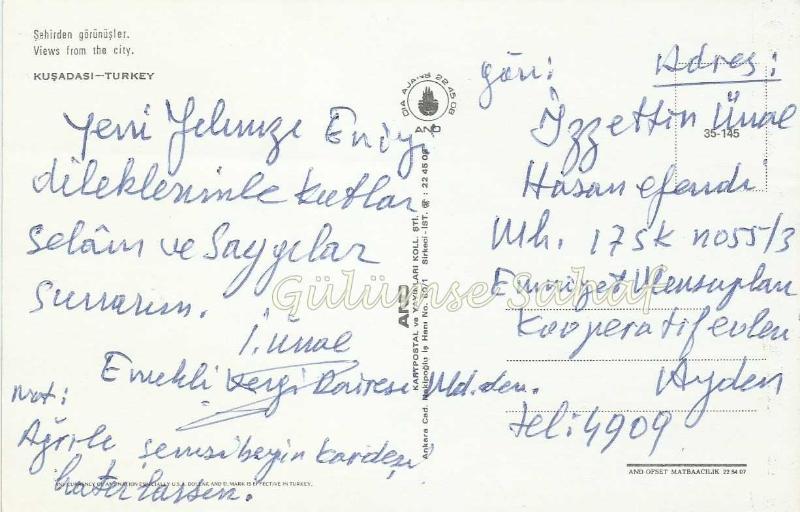 Şehirden görünüşler.
Views from the city.
KUŞADASI—TURKEY
Yeni Yılınızı En iyi
dileklerimle kutlar
Selâm ve Saygılar
Sunarım.
İ. Ünal
Emekli Vergi Dairesi Md.den.
Not:
Ağrılı şemsi beyin kardeşi
hatırlarsın.
DIA AJANS 22 45 08
AND
AND
KARTPOSTAL ve YAYINLARI KOLL. ŞTİ.
Ankara Cad. Nakipoğlu İş Hanı No. 60/1 Sirkeci-İST. ☎: 22 45 08
Gön: Adres:
İzzettin Ünal
35-145
Hasan efendi
Mh. 17 SK no 55/3
Emniyet Mensupları
Kooperatif evleri
Aydın
tel: 4909
Gülümse Sahaf
AND OFSET MATBAACILIK 22 54 07
ANY CURRENCY OF ANY NATION ESPECIALLY U.S.A. DOLLAR AND D. MARK IS EFFECTIVE IN TURKEY.